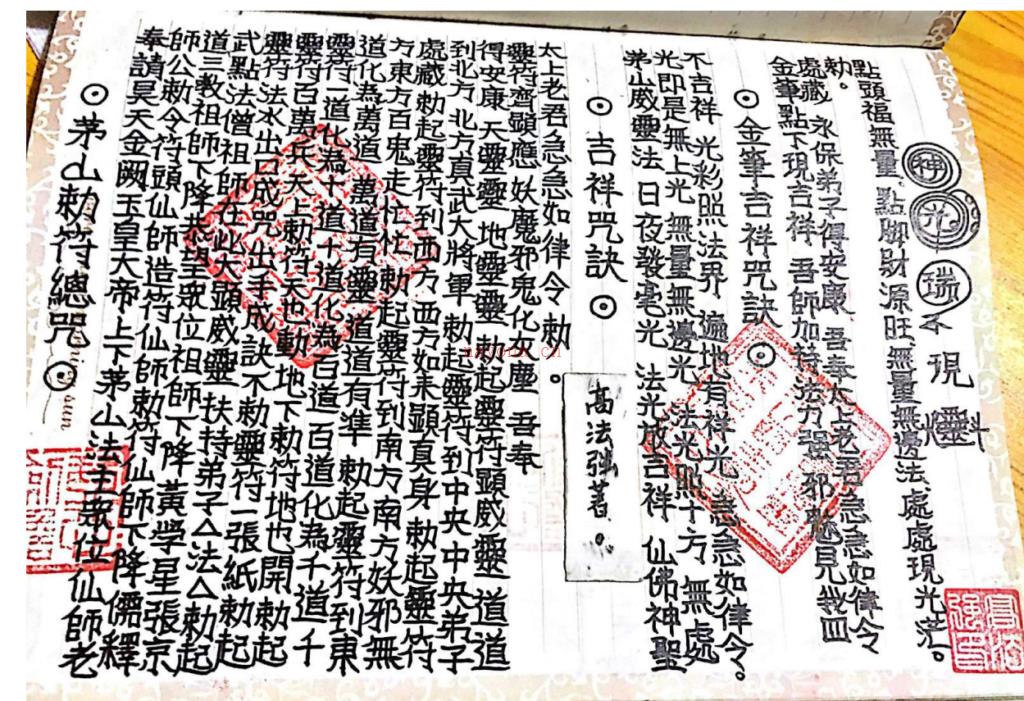 ⊙茅山勅符總咒⊙
奉請昊天金闕玉皇大帝上下茅山法主眾位仙師老
師公勅令符頭仙師造符仙師勅符仙師下降儒釋
道三教祖師下降恭望眾位祖師下降黃學星張京
武點法僧祖師在此大顯威靈扶持弟子△法△勅起
靈符法水出口成咒出手成訣不勅靈符一張紙勅起
靈符百萬兵天上勅符天也動地下勅符地也開勅起
靈符一道化為十道十道化為百道百道化為千道千
道化為萬道萬道有靈道道有準勅起靈符到東
方東方百鬼走忙忙勅起靈符到南方南方妖邪無
處藏勅起靈符到西方西方如來顯真身勅起靈符
到北方北方真武大將軍勅起靈符到中央中央弟子
得安康天靈靈地靈靈勅起靈符顯威靈道道
靈符齊顯應妖魔邪鬼化灰塵吾奉
太上老君急急急如律令勅。
高法強著。
⊙吉祥咒訣⊙
茅山威靈法日夜發毫光法光放吉祥仙佛神聖
光即是無上光無量無邊光法光照十方無處
不吉祥光彩照法界遍地有祥光急急如律令。
⊙金筆吉祥咒訣⊙
金筆點下現吉祥吾師加持法力強邪魅見我四
處藏永保弟子得安康吾奉太上老君急急如律令
勅。
點頭福無量點脚財源旺無量無邊法處處現光茫。
神光瑞現